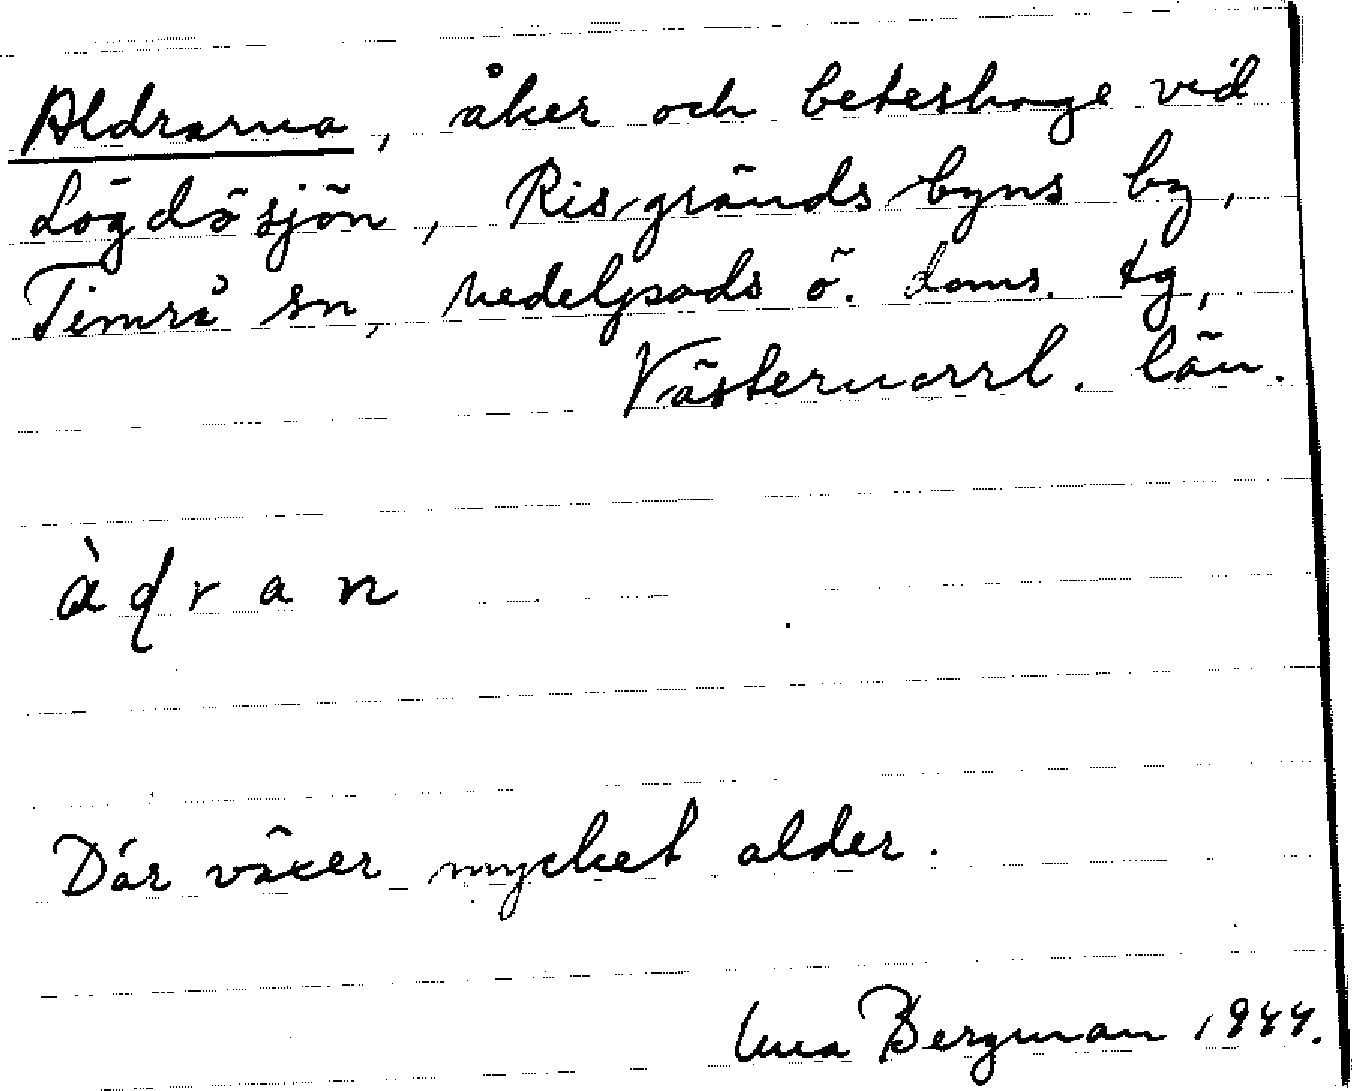 Aldrarna, åker och beteshage vid
Lögdösjön, Risgrändsbyns by,
Timrå sn, Medelpads ö. doms. tg,
Västernorrl. län.
àdran
Där växer mycket alder.
Bergman 1944.